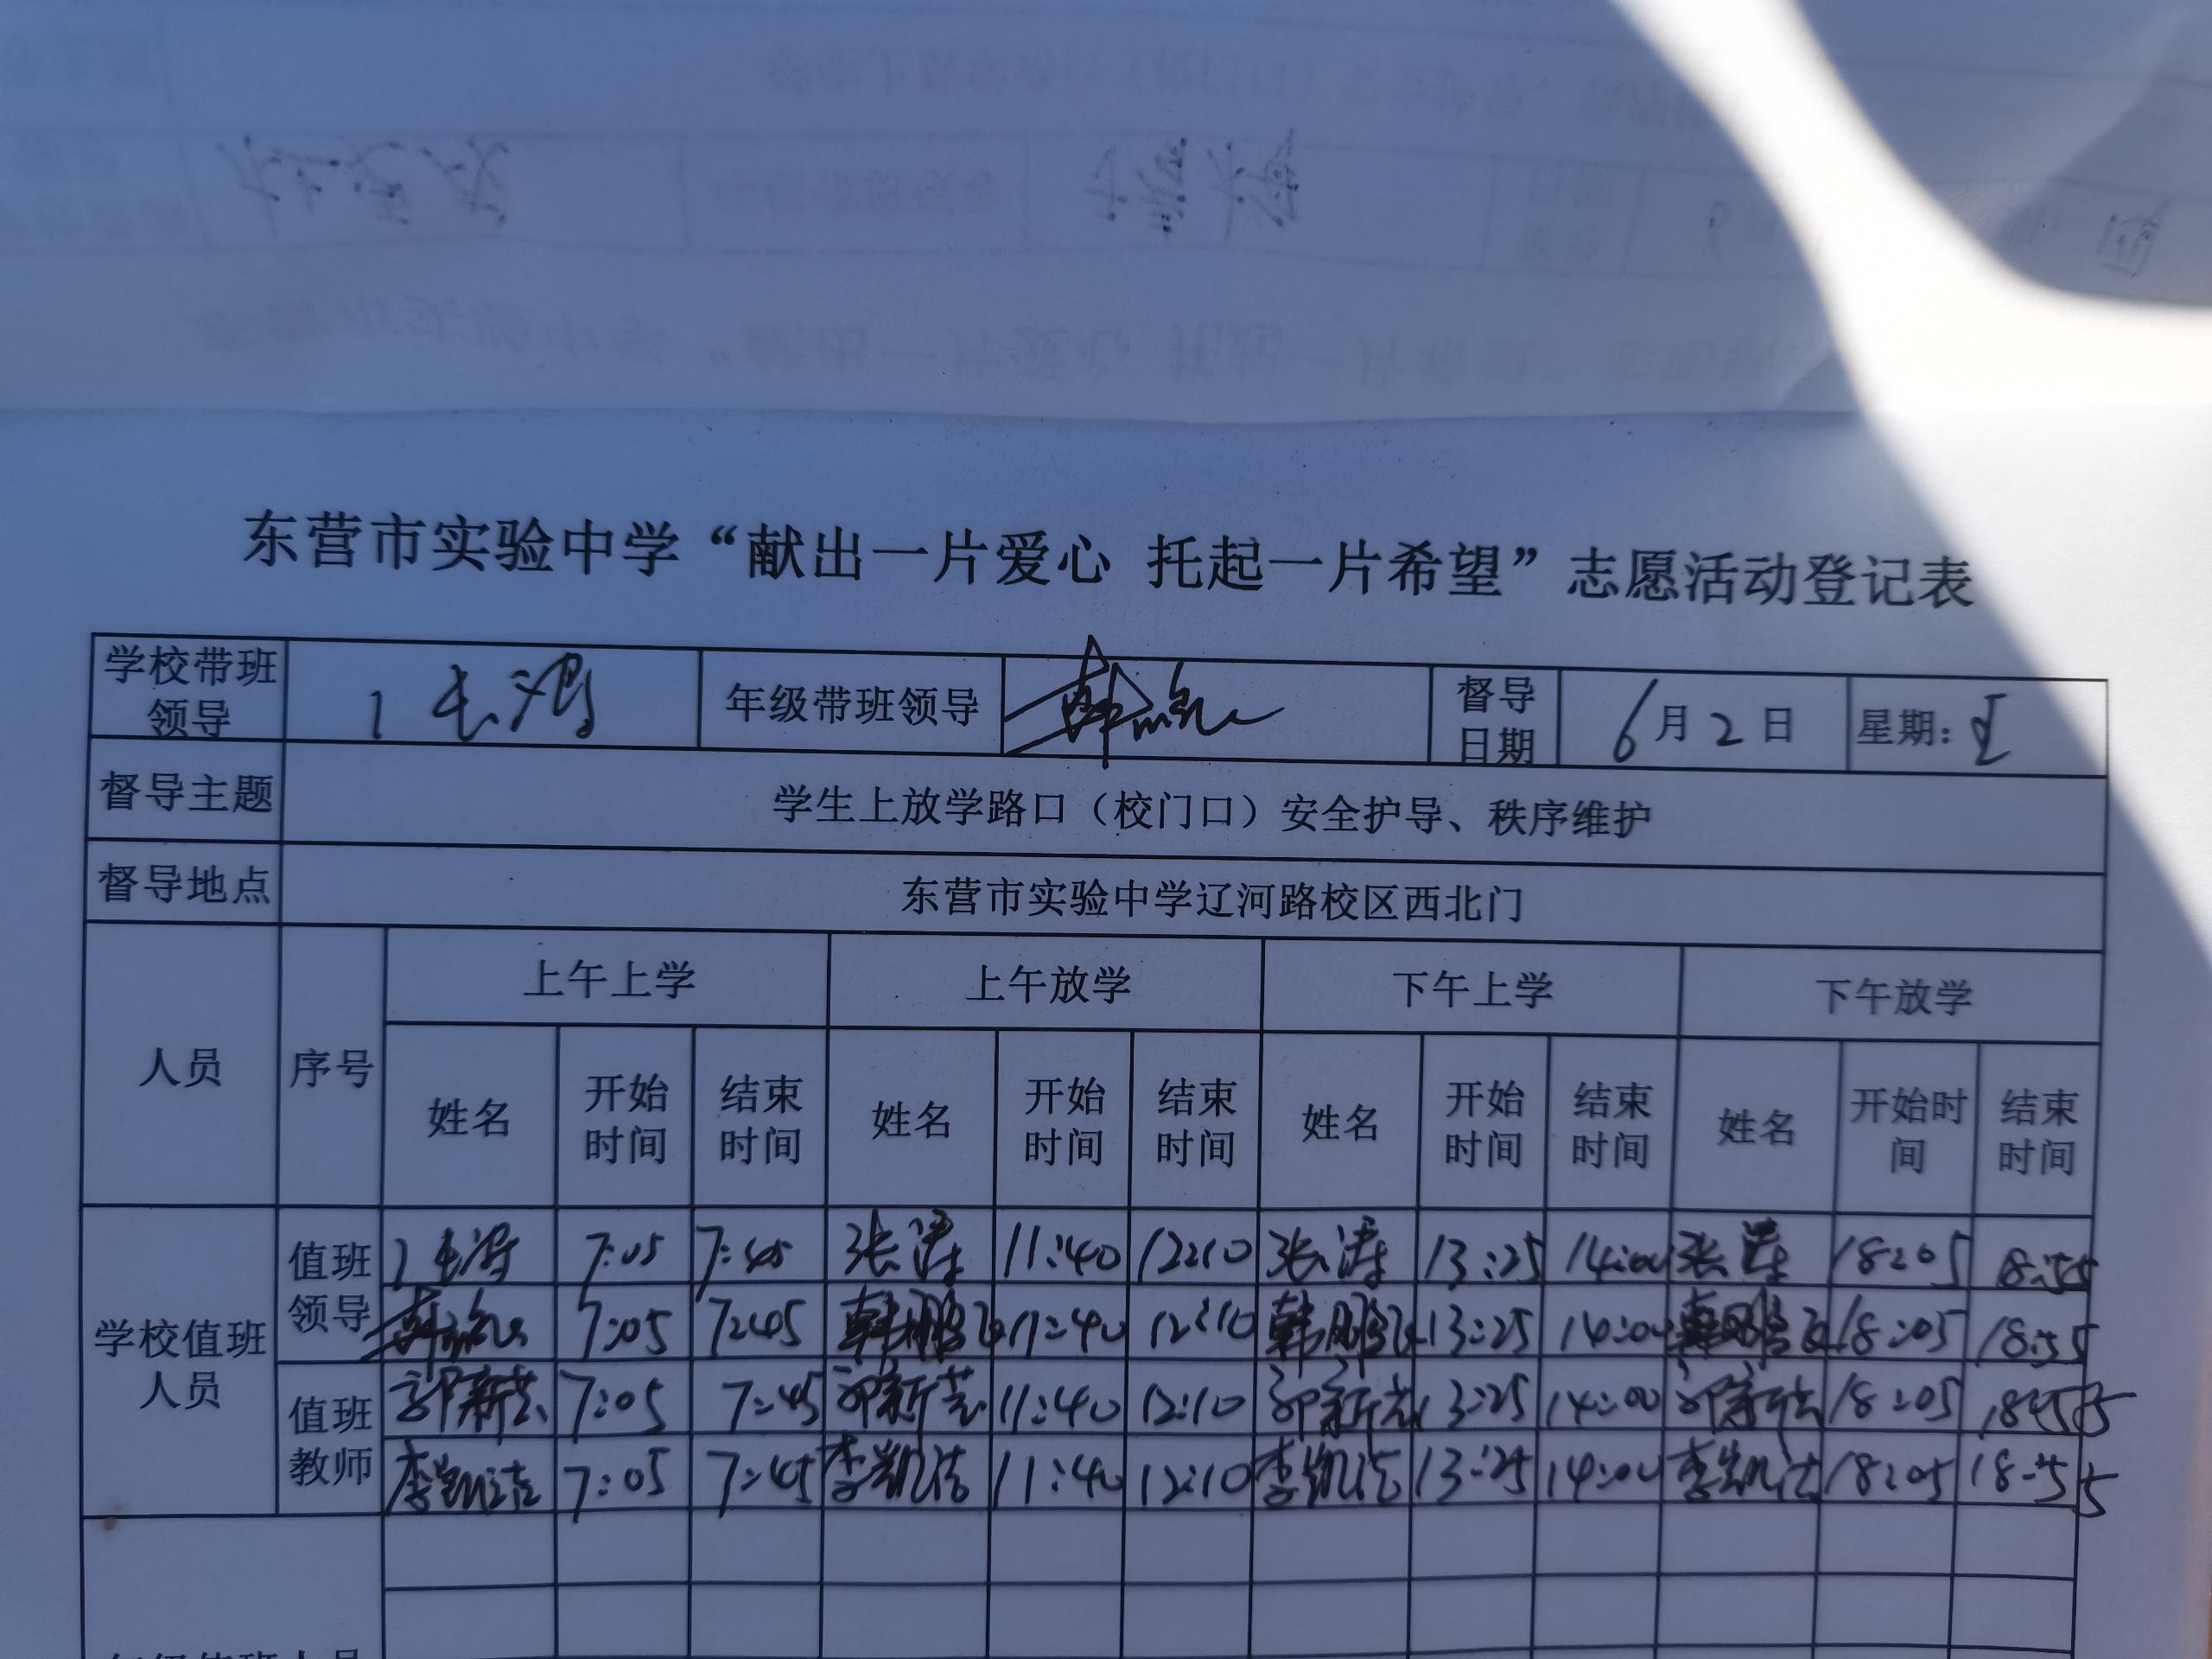 东营市实验中学“献出一片爱心 托起一片希望”志愿活动登记表
学校带班领导 年级带班领导 督导日期 6月2日 星期：五
督导主题 学生上放学路口（校门口）安全护导、秩序维护
督导地点 东营市实验中学辽河路校区西北门
人员 序号 上午上学 上午放学 下午上学 下午放学
姓名 开始时间 结束时间 姓名 开始时间 结束时间 姓名 开始时间 结束时间 姓名 开始时间 结束时间
学校值班人员
值班领导 7:05 7:45 张涛 11:40 12:10 张涛 13:25 14:00 张涛 18:05 18:55
7:05 7:45 韩鹏飞 11:40 12:10 韩鹏飞 13:25 14:00 韩鹏飞 18:05 18:55
值班教师 郭新芸 7:05 7:45 郭新芸 11:40 12:10 郭新芸 13:25 14:00 郭新芸 18:05 18:55
李凯洁 7:05 7:45 李凯洁 11:40 12:10 李凯洁 13:25 14:00 李凯洁 18:05 18:55